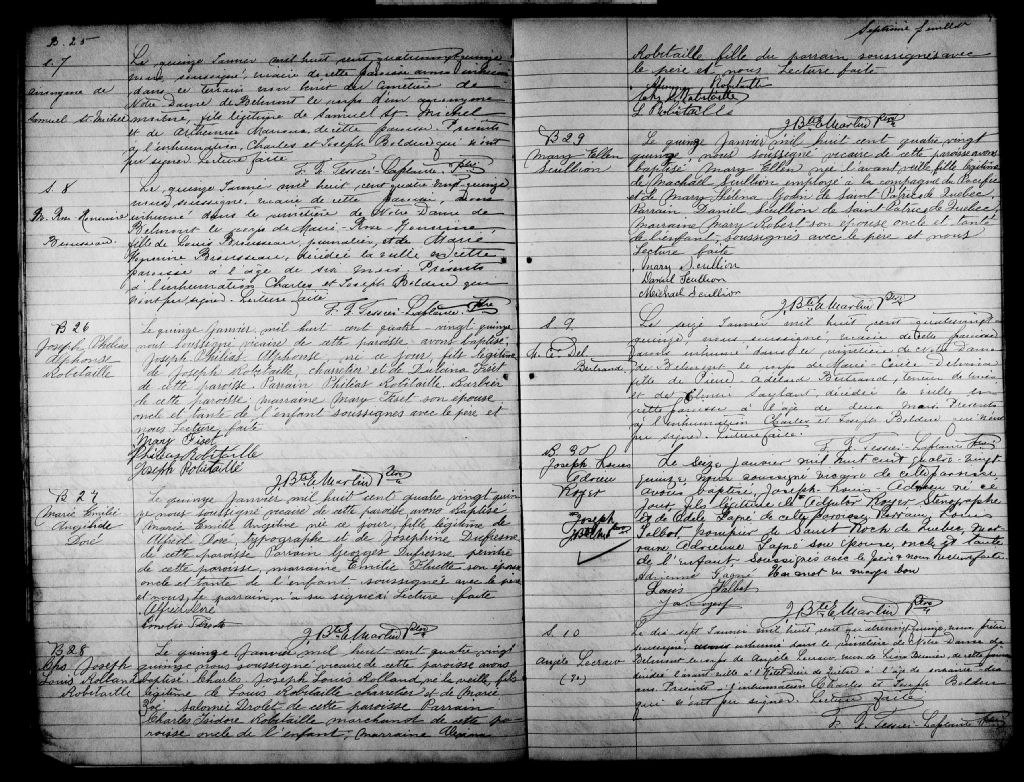 B. 25
S. 7
Anonyme de
Samuel St. Michel
Le quinze Janvier mil huit cent quatre vingt quinze
nous soussigné, vicaire de cette paroisse avons inhumé
dans ce terrain non béni du cimetière de
Notre Dame de Belmont le corps d'un anonyme
fils légitime de Samuel St. Michel
et de de cette paroisse. Présents
à l'inhumation, Charles et Joseph Bolduc qui n'ont
pu signer. Lecture faite
F. X. Tessier-Laplante. Ptre
S. 8
M. Rose Honorine
Brousseau.
Le quinze Janvier mil huit cent quatre vingt quinze
nous soussigné, vicaire de cette paroisse, avons
inhumé dans le cimetière de Notre Dame de
Belmont le corps de Marie-Rose-Honorine,
fille de Louis Brousseau, journalier, et de Marie
Brousseau, décédée la veille en cette
paroisse à l'âge de six mois. Présents
à l'inhumation Charles et Joseph Bolduc qui
n'ont pu signer. Lecture faite
F. X. Tessier-Laplante. Ptre
B 26
Joseph Philias
Alphonse
Robitaille
Le quinze Janvier mil huit cent quatre-vingt quinze
nous soussigné vicaire de cette paroisse avons baptisé,
Joseph Philias Alphonse, né ce jour, fils légitime
de Joseph Robitaille, charretier et de Fiset
de cette paroisse Parrain Philias Robitaille Barbier
de cette paroisse marraine Mary Fiset son épouse
oncle et tante de l'enfant soussignés avec le père et
nous Lecture faite
Mary Fiset
Philias Robitaille
Joseph Robitaille
J. Bte E Martin Ptre
B 27
Marie Emilie
Angéline
Doré
Le quinze Janvier mil huit cent quatre vingt quin
ze nous soussigné vicaire de cette paroisse avons Baptisé
Marie Emilie Angéline née ce jour, fille légitime de
Alfred Doré typographe et de Josephine Dufresne
de cette paroisse Parrain Georges Dufresne peintre
de cette paroisse, marraine Emilie son épouse
oncle et tante de l'enfant soussignés avec le père
et nous, le parrain n'a su signer. Lecture faite
Alfred Doré
J. Bte E Martin Ptre
B 28
Chs Joseph
Louis Rolland
Robitaille
Le quinze Janvier mil huit cent quatre vingt
quinze nous soussigné vicaire de cette paroisse avons
baptisé Charles Joseph Louis Rolland, né la veille, fils
légitime de Louis Robitaille charretier et de Marie
Zoé Salomée Drolet de cette paroisse Parrain
Charles Isidore Robitaille marchand de cette pa-
roisse oncle de l'enfant, marraine
Septième feuillet
Robitaille fille du parrain soussignés avec
le père et nous Lecture faite
Robitaille
Chs I Robitaille
L Robitaille
J. Bte E Martin Ptre
B 29
Mary Ellen
Scullion
Le quinze Janvier mil huit cent quatre vingt
quinze, nous soussigné vicaire de cette paroisse avons
baptisé Mary Ellen née l'avant veille fille légitime
de Michael Scullion employé à la compagnie du Pacifique
et de Mary Helena Godin de Saint Patrice de Québec
Parrain Daniel Scullion de Saint Patrice de Québec,
marraine Mary Robert son épouse oncle et tante
de l'enfant, soussignés avec le père et nous
Lecture faite
Mary Scullion
Daniel Scullion
Michael Scullion
J. Bte E Martin Ptre
S. 9
M. C. Del.
Bertrand,
Le seize Janvier mil huit cent quatre vingt
quinze, nous soussigné, vicaire de cette paroisse
avons inhumé dans le cimetière de Notre Dame
de Belmont le corps de Marie-Cécile Delvina
fille de Pierre Adélard Bertrand,
et de décédée la veille en
cette paroisse à l'âge de deux mois. Présents
à l'inhumation Charles et Joseph Bolduc qui n'ont
pu signer. Lecture faite.
F. X. Tessier-Laplante Ptre
B. 30
Joseph Louis
Roger
Joseph
Le Seize Janvier mil huit cent quatre-vingt
quinze, nous soussigné vicaire de cette paroisse
avons baptisé, Joseph-Louis né ce
jour, fils légitime de Roger Sténographe
et de Odile Gagné de cette paroisse, Parrain, Louis
Talbot pompier de Saint Roch de Québec, mar
raine Gagné son épouse, oncle et tante
de l'enfant. Soussignés avec le père & nous Lecture faite
Gagné Un mot en marge bon
Louis Talbot
J. Bte E Martin Ptre
S. 10
Angèle
Le dix sept Janvier mil huit cent quatre vingt quinze nous prêtre
soussigné, avons inhumé dans le cimetière de Notre Dame de
Belmont le corps de Angèle de cette paroisse
décédée l'avant veille à l'Hôtel Dieu de Québec à l'âge de
ans. Présents à l'inhumation Charles et Joseph Bolduc
qui n'ont pu signer. Lecture faite
F. X. Tessier-Laplante Ptre